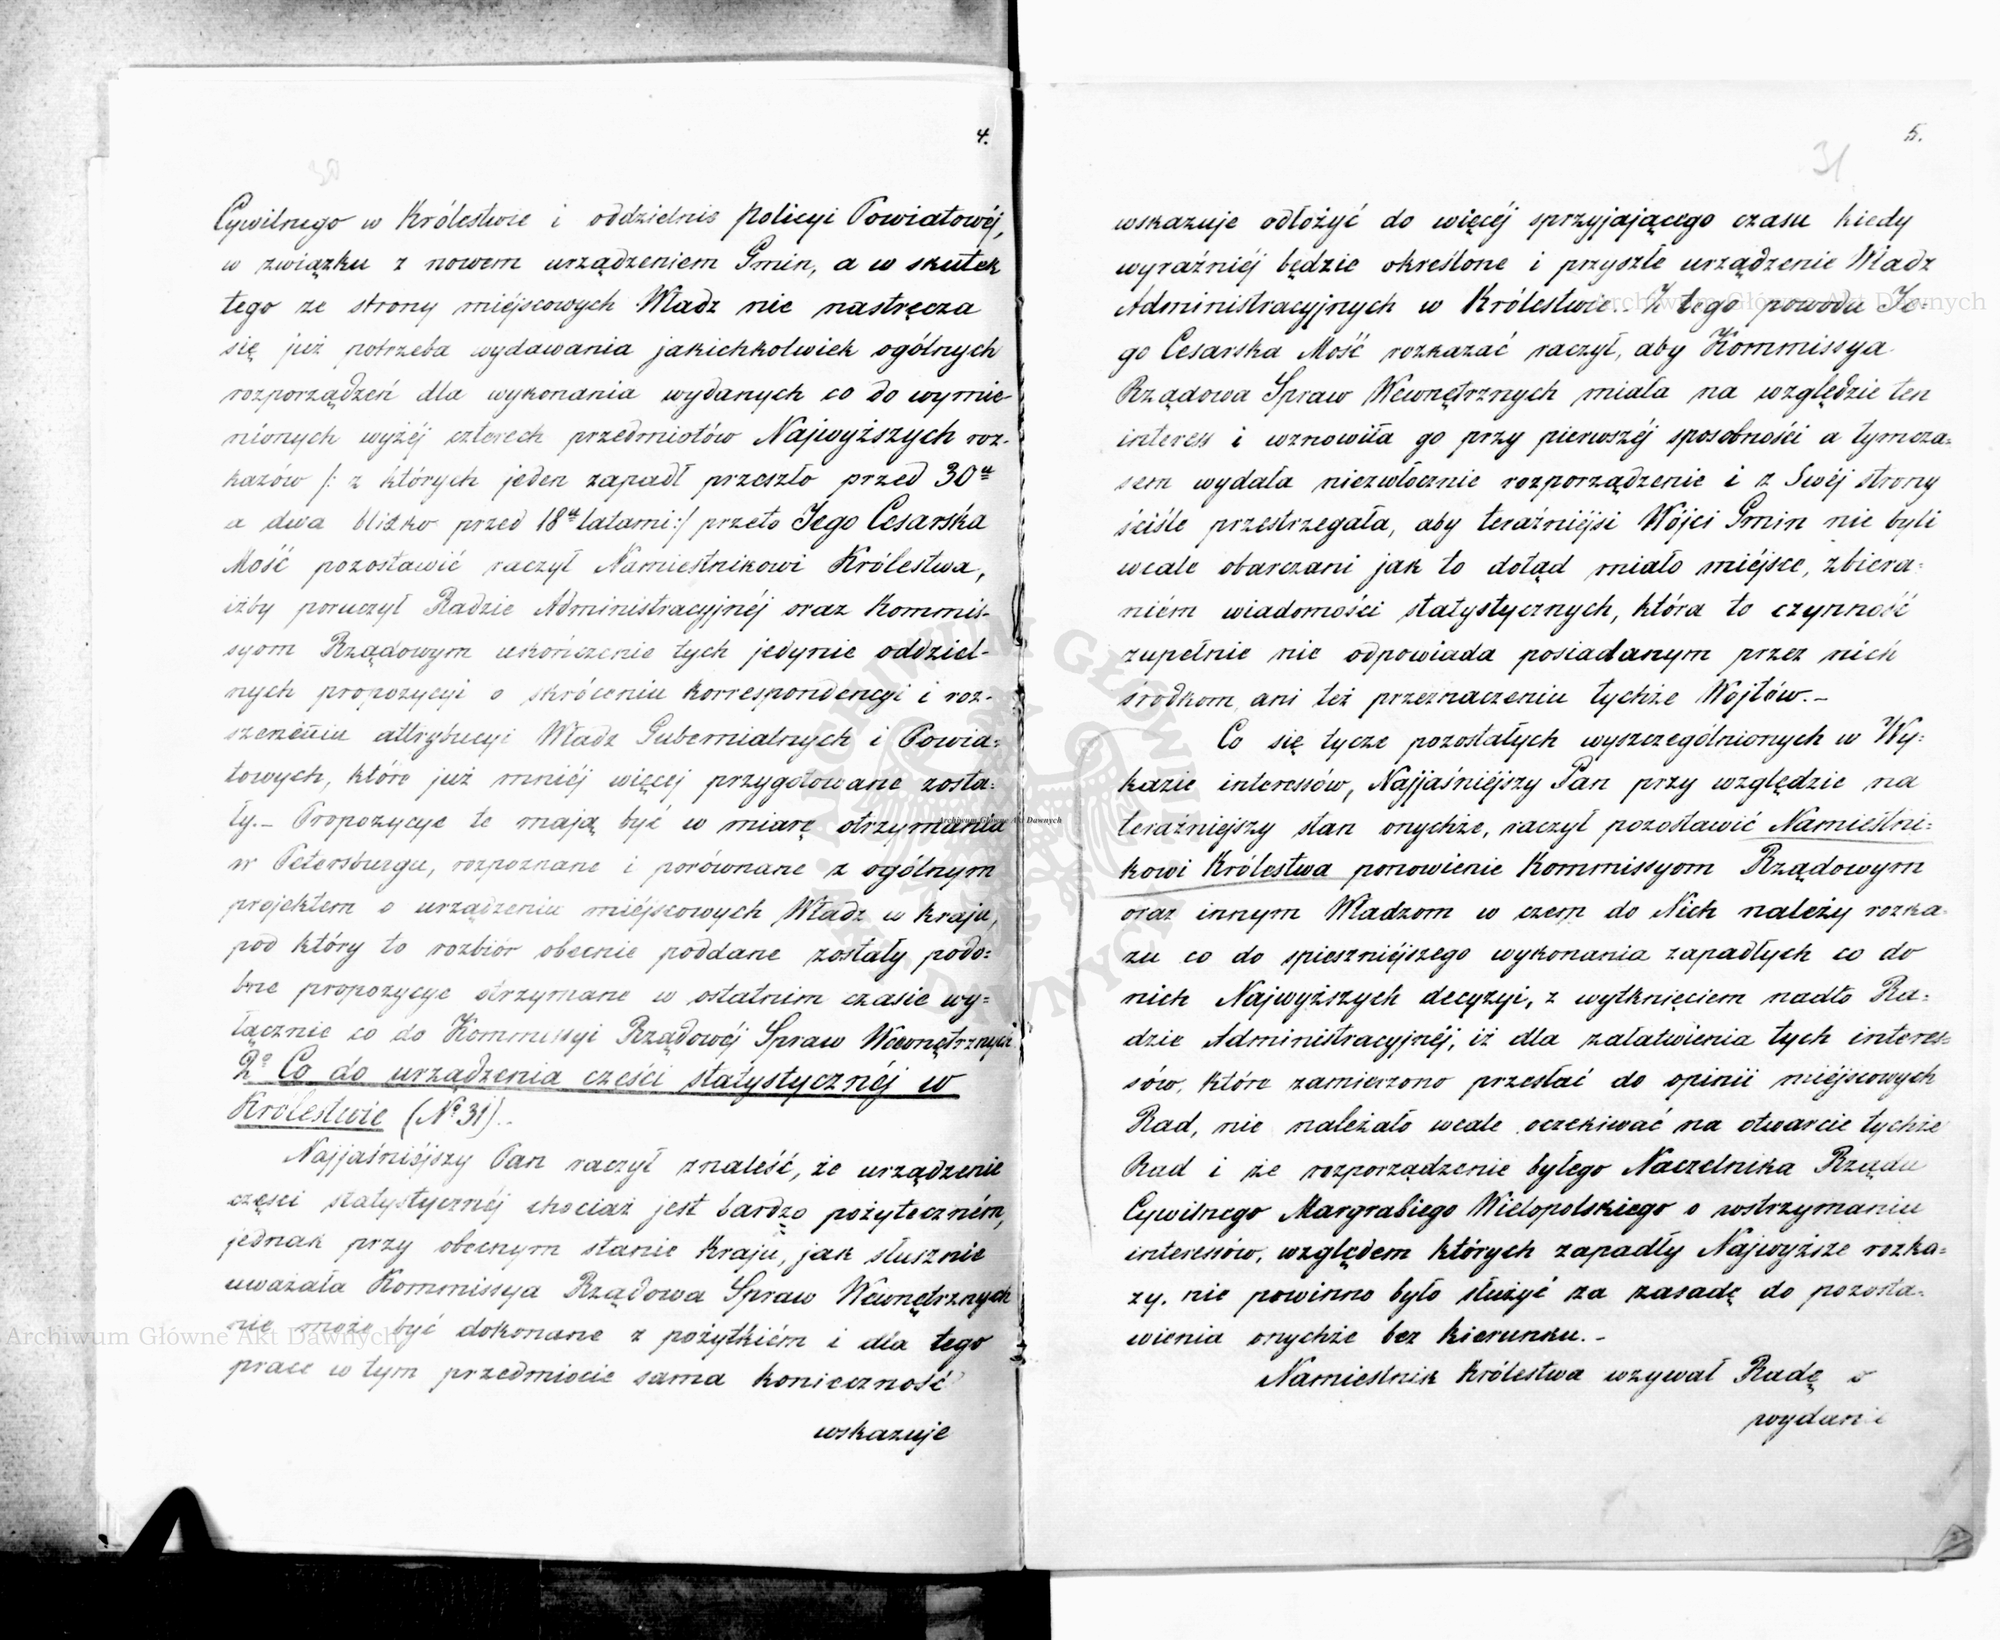 4.
30
Cywilnego w Królestwie i oddzielnie Policyi Powiatowéj,
w związku z nowem urządzeniem Gmin, a w skutek
tego ze strony miéjscowych Władz nie nastręcza
się już potrzeba wydawania jakichkolwiek ogólnych
rozporządzeń dla wykonania wydanych co do wymie-
nionych wyżéj czterech przedmiotów Najwyższych roz-
kazów /: z których jeden zapadł przeszło przed 30u
a dwa blizko przed 18u latami:/ przeto Jego Cesarska
Mość pozostawić raczył Namiestnikowi Królestwa,
iżby poruczył Radzie Administracyjnéj oraz Kommis-
syom Rządowym ukończenie tych jedynie oddziel-
nych propozycyi o skróceniu korrespondencyi i roz-
szerzeniu attrybucyi Władz Gubernialnych i Powia-
towych, które już mniéj więcej przygotowane zosta-
ły.- Propozycye te mają być w miarę otrzymania
w Petersburgu, rozpoznane i porównane z ogólnym
projektem o urządzeniu miéjscowych Władz w kraju,
pod który to rozbiór obecnie poddane zostały podo-
bne propozycye otrzymane w ostatnim czasie wy-
łącznie co do Kommissyi Rządowéj Spraw Wewnętrznych
2o Co do urządzenia części statystycznéj w
Królestwie (No 31).-
Najjaśniéjszy Pan raczył znaleść, że urządzenie
części statystycznéj chociaż jest bardzo pożyteczném,
jednak przy obecnym stanie kraju, jak słusznie
uważała Kommissya Rządowa Spraw Wewnętrznych
nie może być dokonane z pożytkiém i dla tego
prace w tym przedmiocie sama konieczność
wskazuje
5.
31
wskazuje odłożyć do więcéj sprzyjającego czasu kiedy
wyraźniéj będzie określone i przyszłe urządzenie Władz
Administracyjnych w Królestwie.- Z tego powodu Je-
go Cesarska Mość rozkazać raczył, aby Kommissya
Rządowa Spraw Wewnętrznych miała na względzie ten
interess i wznowiła go przy pierwszéj sposobności a tymcza-
sem wydała niezwłocznie rozporządzenie i z Swéj strony
ściśle przestrzegała, aby teraźniéjsi Wójci Gmin nie byli
wcale obarczani jak to dotąd miało miéjsce, zbiera-
niém wiadomości statystycznych, która to czynność
zupełnie nie odpowiada posiadanym przez nich
środkom, ani też przeznaczeniu tychże Wójtów.-
Co się tycze pozostałych wyszczególnionych w Wy-
kazie interessów, Najjaśniéjszy Pan przy względzie na
teraźniejszy stan onychże, raczył pozostawić Namiestni-
kowi Królestwa ponowienie Kommissyom Rządowym
oraz innym Władzom w czem do Nich należy rozka-
zu co do spieszniéjszego wykonania zapadłych co do
nich Najwyższych decyzyi, z wytknięciem nadto Ra-
dzie Administracyjnéj, iż dla załatwienia tych interes-
sów, które zamierzono przesłać do opinii miéjscowych
Rad, nie należało wcale oczekiwać na otwarcie tychże
Rad i że rozporządzenie byłego Naczelnika Rządu
Cywilnego Margrabiego Wielopolskiego o wstrzymaniu
interessów, względem których zapadły Najwyższe rozka-
zy, nie powinno było służyć za zasadę do pozosta-
wienia onychże bez kierunku.-
Namiestnik Królestwa wzywał Radę o
wydanie
Archiwum Główne Akt Dawnych
Archiwum Główne Akt Dawnych
Archiwum Główne Akt Dawnych